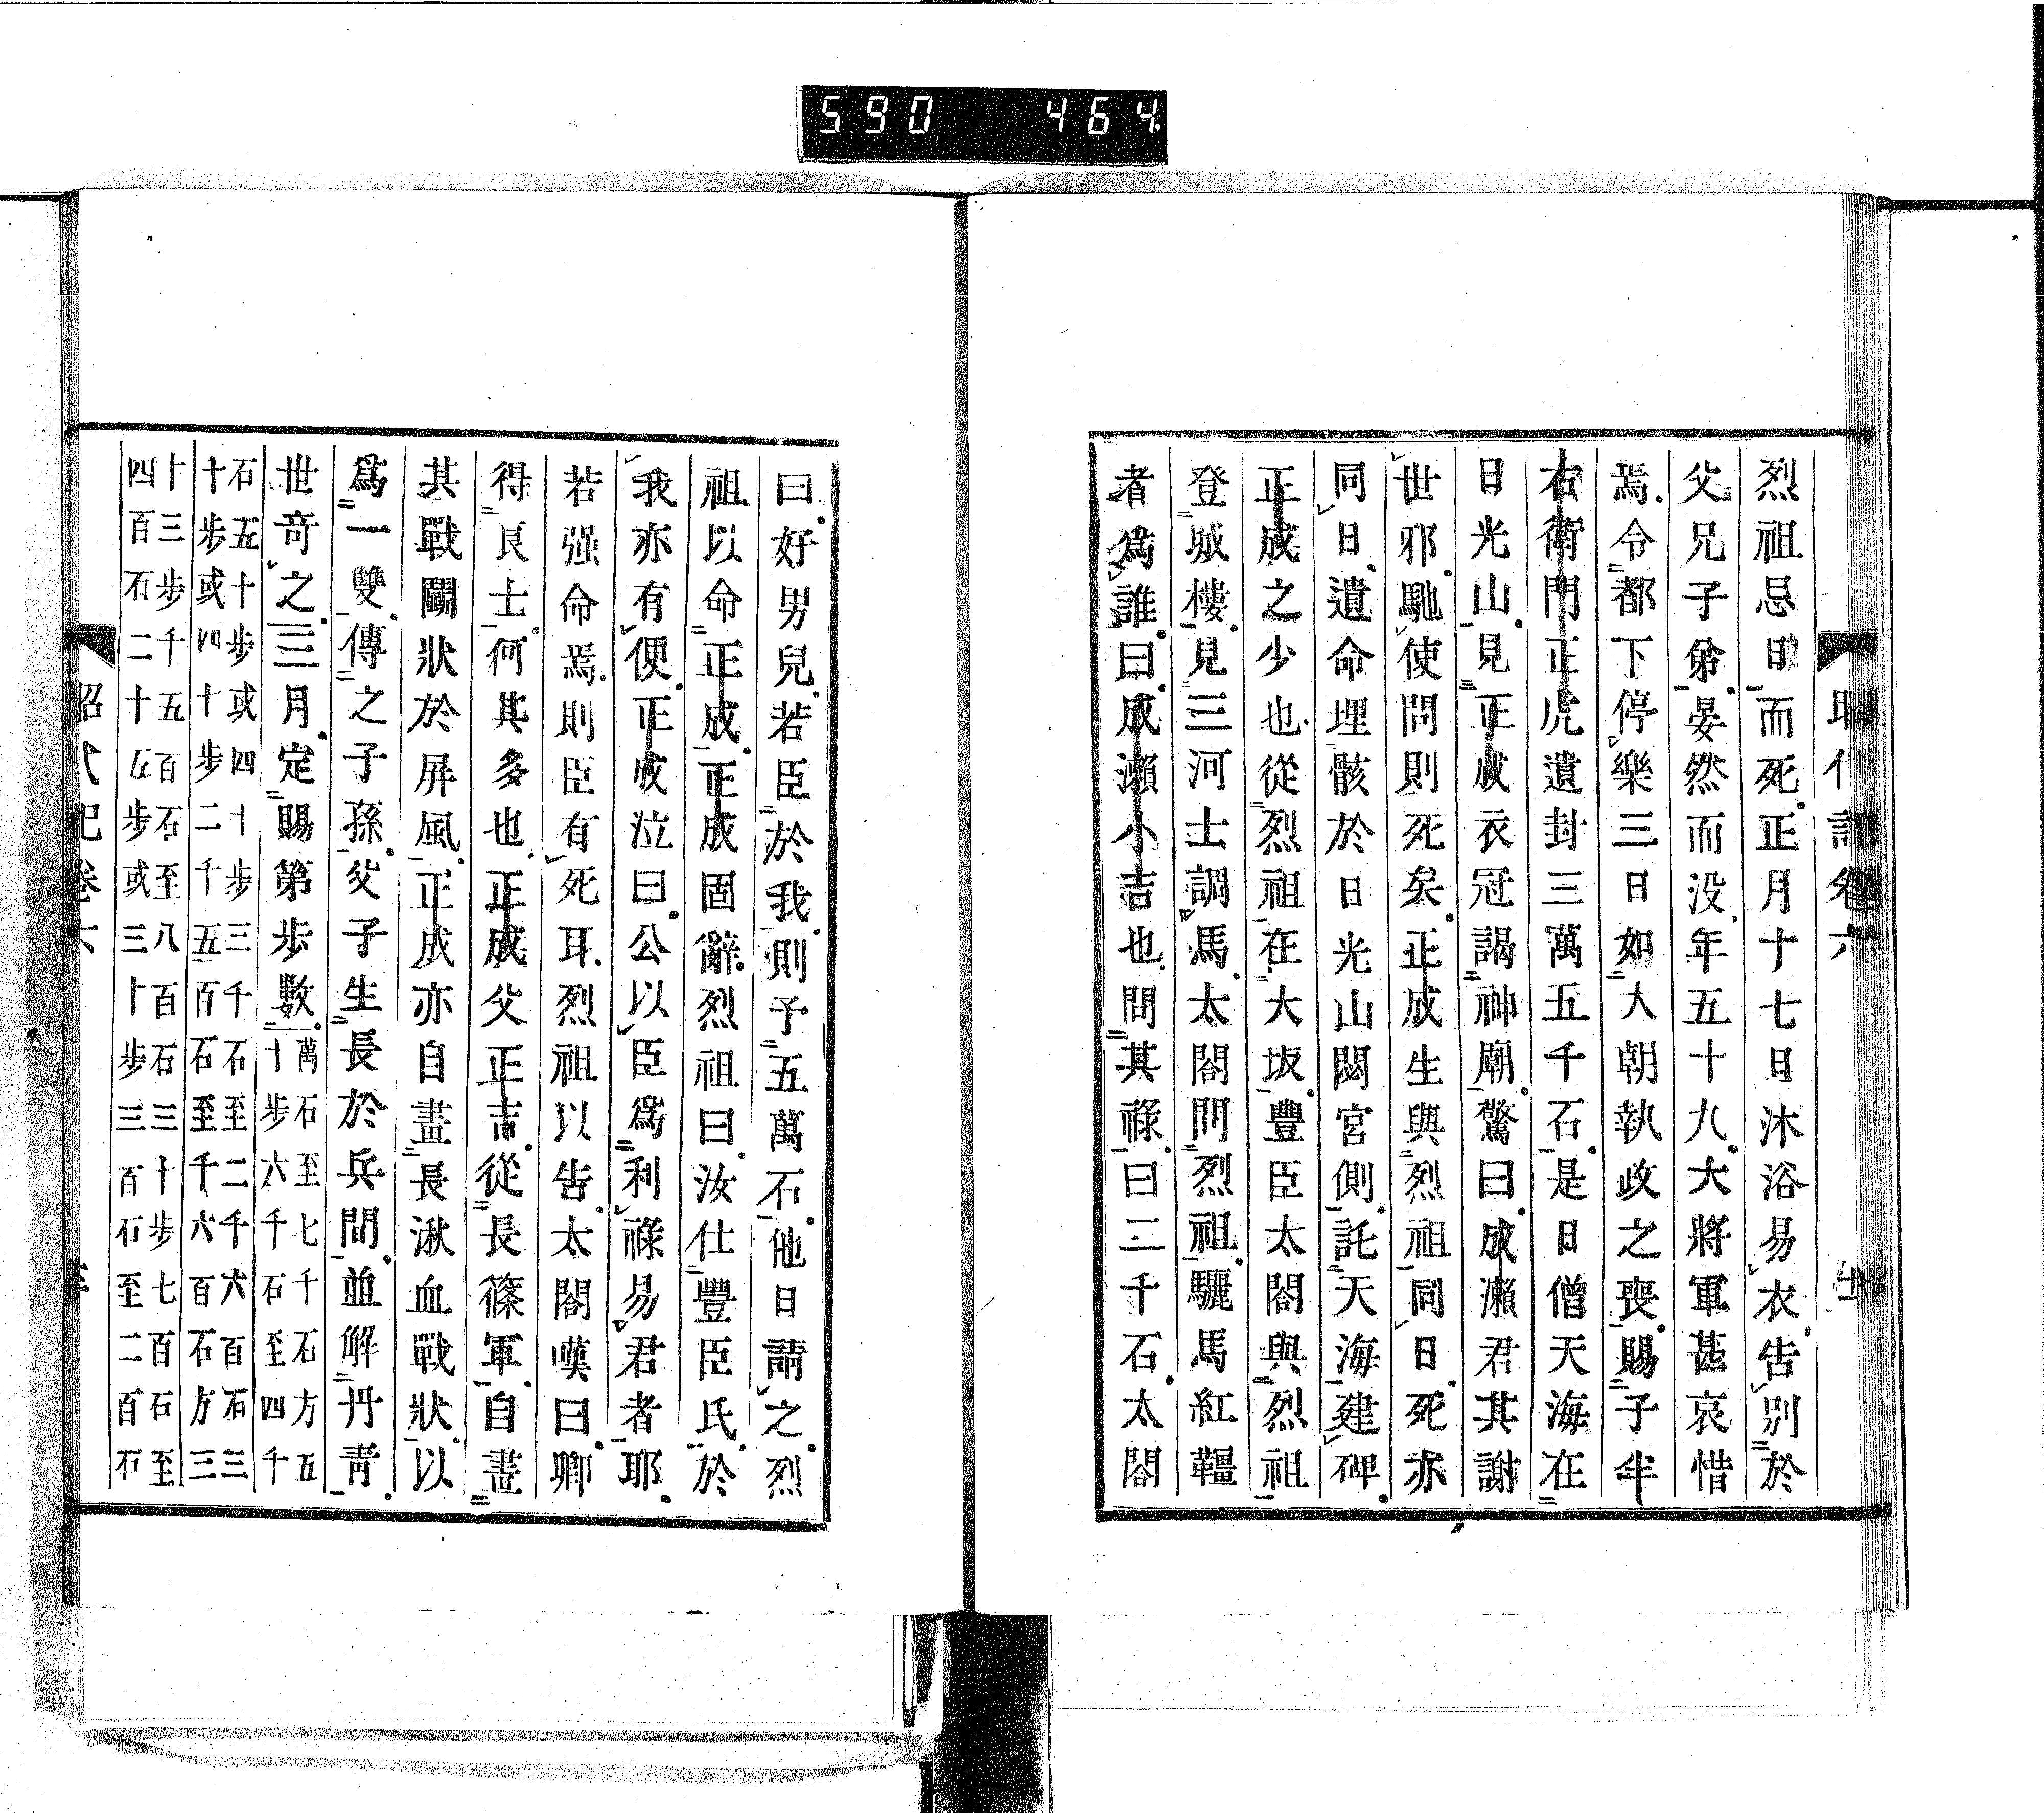 590 464
昭代記卷六 十一
烈祖忌日而死正月十七日沐浴易衣告別於
父兄子弟晏然而没年五十九大將軍甚哀惜
焉令都下停樂三日如大朝執政之喪賜子半
右衛門正虎遺封三萬五千石是日僧天海在
日光山見正成衣冠謁神廟驚曰成瀨君其謝
世邪馳使問則死矣正成生與烈祖同日死亦
同日遺命埋骸於日光山閟宮側託天海建碑
正成之少也從烈祖在大坂豐臣太閤與烈祖
登城樓見三河士調馬太閤問烈祖驪馬紅韁
者爲誰曰成瀨小吉也問其祿曰二千石太閤
曰好男兒若臣於我則予五萬石他日請之烈
祖以命正成正成固辭烈祖曰汝仕豐臣氏於
我亦有便正成泣曰公以臣爲利祿易君者耶
若强命焉則臣有死耳烈祖以告太閤嘆曰卿
得良士何其多也正成父正吉從長篠軍自畫
其戰鬭狀於屏風正成亦自畫長湫血戰狀以
爲一雙傳之子孫父子生長於兵間並解丹青
世奇之三月定賜第步數萬石至七千石方五
十步六千石至四千
石五十步或四十步三千石至二千六百石三
十步或四十步二千五百石至千六百石方三
十三步千五百石至八百石三十步七百石至
四百石二十五步或三十步三百石至二百石
昭代記卷六